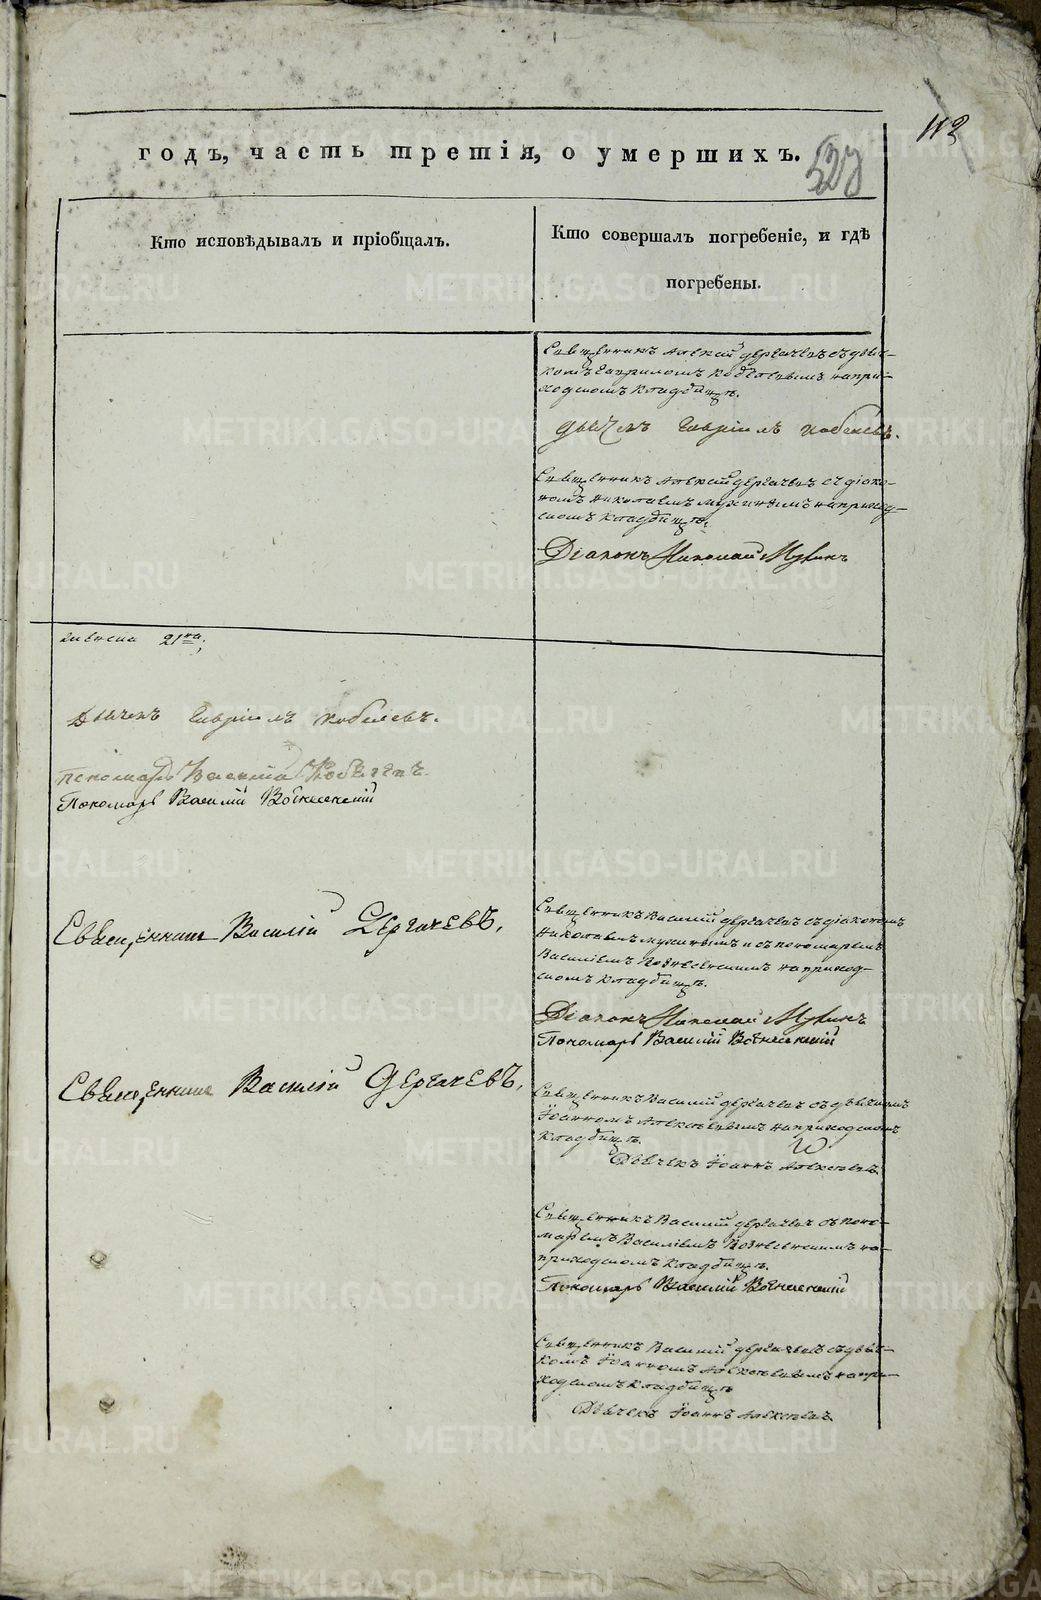 112
годъ, часть третія, о умершихъ.
527
Кто исповѣдывалъ и пріобщалъ.
Кто совершалъ погребеніе, и гдѣ
погребены.
Священникъ Алексій Дергачевъ съ дьяч-
комъ Гавриломъ Кобелевымъ на при-
ходскомъ кладбищѣ.
Дьячекъ Гавріилъ Кобелевъ.
Священникъ Алексій Дергачевъ съ діако-
номъ Николаемъ Мухинымъ на приход-
скомъ кладбищѣ.
Діаконъ Николай Мухинъ
21го;
Дьячекъ Гавріилъ Кобелевъ.
Пономарь Василій
Пономарь Василій Вознесенскій
Священникъ Василій Дергачевъ.
Священникъ Василій Дергачевъ съ діакономъ
Николаемъ Мухинымъ и съ пономаремъ
Василіемъ Вознесенскимъ на приход-
скомъ кладбищѣ.
Діаконъ Николай Мухинъ
Пономарь Василій Вознесенскій
Священникъ Василій Дергачевъ.
Священникъ Василій Дергачевъ съ дьячкомъ
Іоанномъ Алексѣевымъ на приходскомъ
кладбищѣ.
Дьячекъ Іоаннъ Алексѣевъ
Священникъ Василій Дергачевъ съ поно-
маремъ Василіемъ Вознесенскимъ на
приходскомъ кладбищѣ.
Пономарь Василій Вознесенскій
Священникъ Василій Дергачевъ съ дьяч-
комъ Іоанномъ Алексѣевымъ на при-
ходскомъ кладбищѣ
Дьячекъ Іоаннъ Алексѣевъ
METRIKI.GASO-URAL.RU